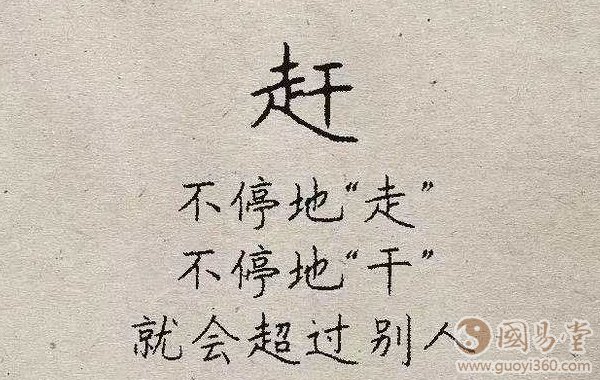 赶
不停地“走”
不停地“干”
就会超过别人
國易堂
www.guoyi360.com